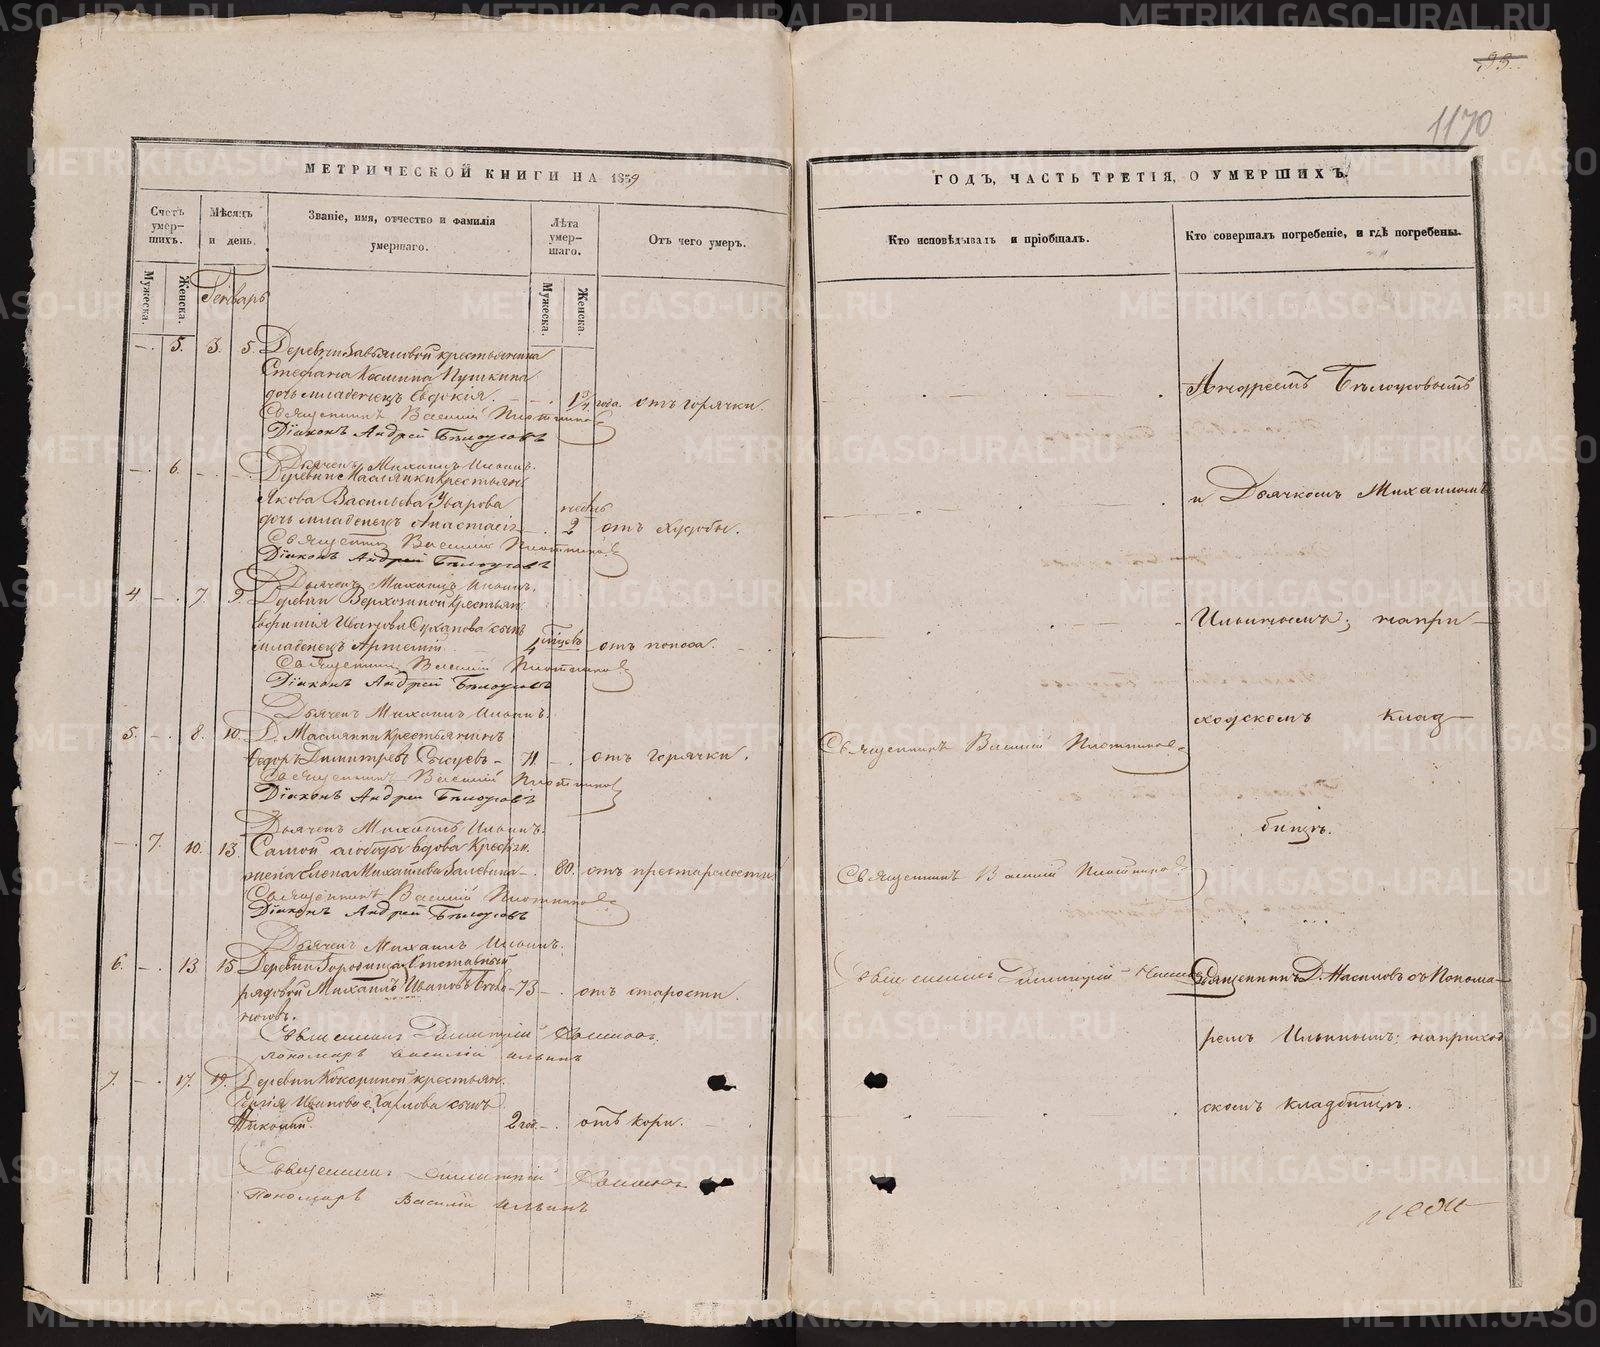 METRIKI.GASO-URAL.RU
33.
1170
МЕТРИЧЕСКОЙ КНИГИ НА 1859
ГОДЪ, ЧАСТЬ ТРЕТІЯ, О УМЕРШИХЪ.
Счетъ умер-шихъ.
Мѣсяцъ и день.
Званіе, имя, отчество и фамилія умершаго.
Лѣта умер-шаго.
Отъ чего умеръ.
Кто исповѣдывалъ и пріобщалъ.
Кто совершалъ погребеніе, и гдѣ погребены.
Мужеска.
Женска.
Мужеска.
Женска.
Генварь
5. 3. 5. Деревни Завьяловой крестьянина
Стефана Косьмина Пушкина
дочь младенецъ Евдокія. 1 3/4 года. отъ горячки.
Священникъ Василій Плотниковъ
Діаконъ Андрей Бѣлоусовъ
Дьячекъ Михаилъ Ильинъ.
Андреемъ Бѣлоусовымъ
6. Деревни Маслянки Крестьян.
Якова Васильева Уварова
дочь младенецъ Анастасія недѣль 2 отъ худобы.
Священникъ Василій Плотниковъ
Діаконъ Андрей Бѣлоусовъ
Дьячекъ Михаилъ Ильинъ.
и Дьячкомъ Михаиломъ
4. 7. 9. Деревни Верхозиной Крестьян.
Ивановa Суханова сынъ
младенецъ Артемій 4 отъ поноса.
Священникъ Василій Плотниковъ
Діаконъ Андрей Бѣлоусовъ
Дьячекъ Михаилъ Ильинъ.
Ильинымъ; на при-
ходскомъ клад-
5. 8. 10. Д. Маслянки крестьянинъ
Ѳедоръ Димитріевъ 71 отъ горячки.
Священникъ Василій Плотниковъ
Діаконъ Андрей Бѣлоусовъ
Дьячекъ Михаилъ Ильинъ.
Священникъ Василій Плотниковъ
бищѣ.
7. 10. 13. Самой слободы вдова Крестьян.
Елена Михайлова 80. отъ престарелости
Священникъ Василій Плотниковъ
Діаконъ Андрей Бѣлоусовъ
Дьячекъ Михаилъ Ильинъ.
Священникъ Василій Плотниковъ
6. 13. 15 Деревни Городища Отставный
рядовой Михаилъ Ивановъ 73 отъ старости.
Священникъ Димитрій
Пономарь Василій Ильинъ
Священникъ Димитрій
Священникъ Д. съ Понома-
ремъ Ильинымъ; на приход
скомъ кладбищѣ.
7. 17. 19. Деревни Кокориной крестьян.
Ивановa Харлова сынъ
2 год. отъ кори.
Священникъ Димитрій
Пономарь Василій Ильинъ